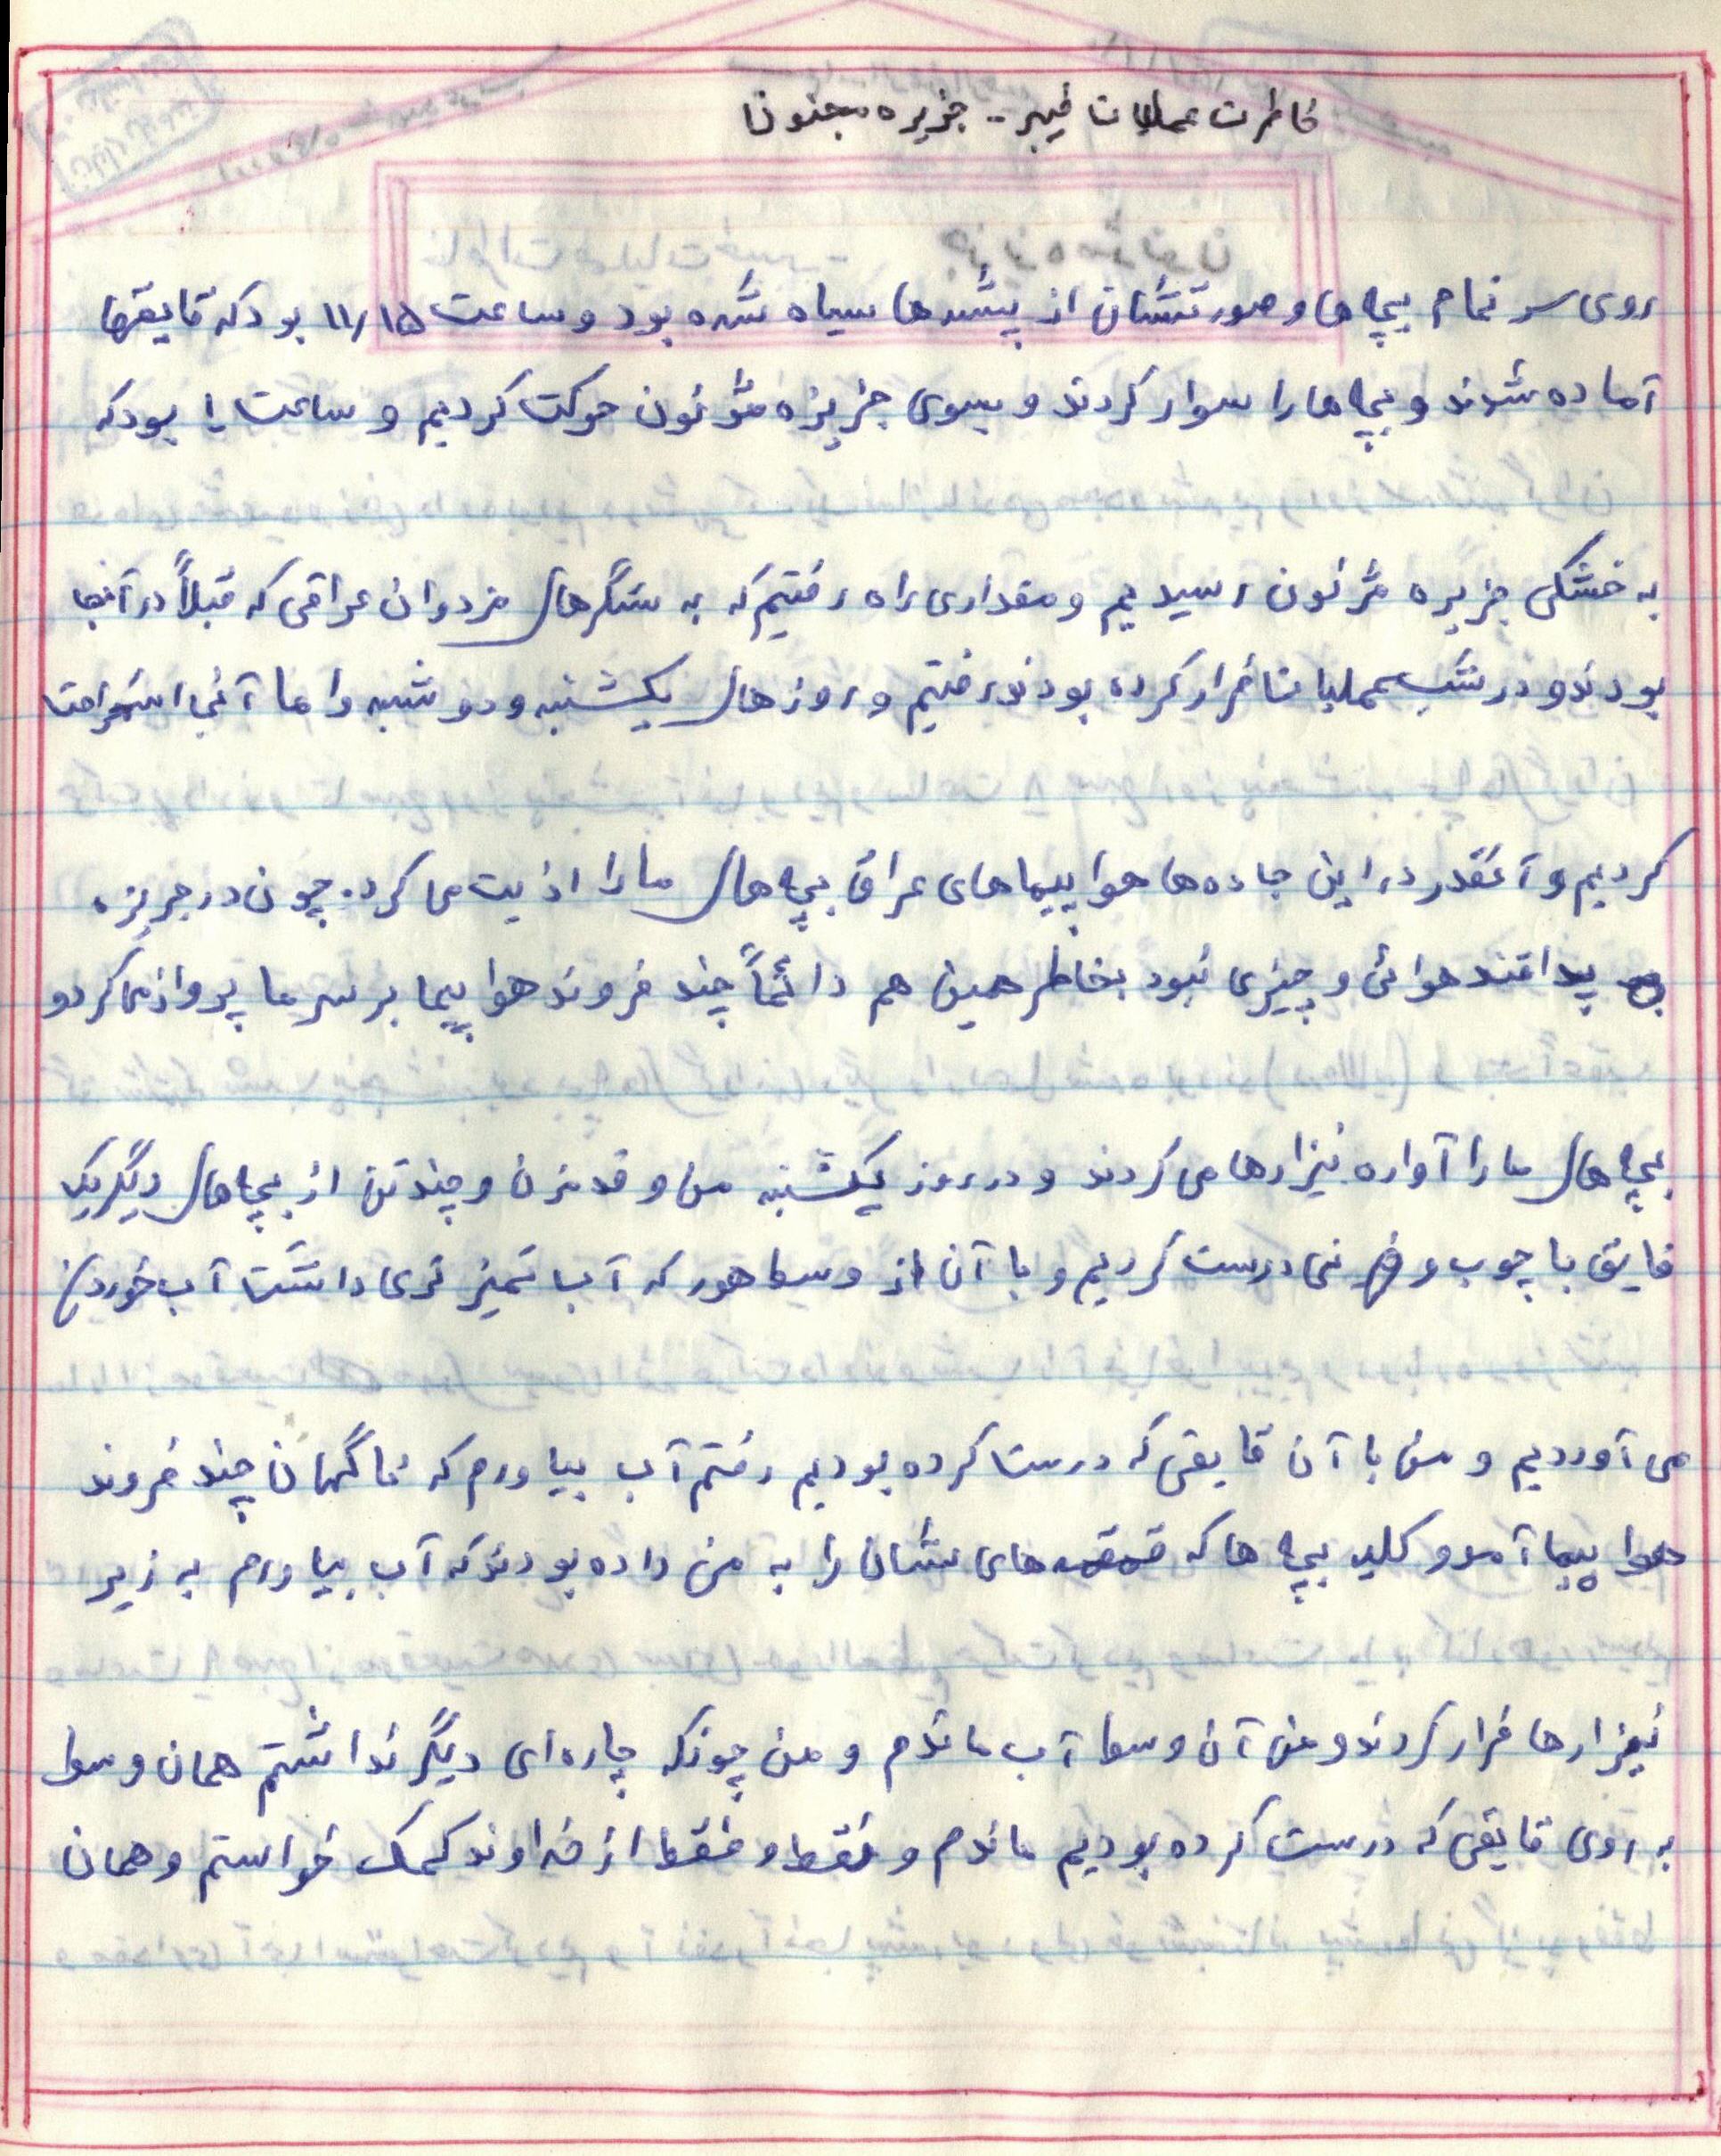 خاطرات عملیات خیبر - جزیره مجنون
روی سر تمام بچه ها و صورتشان از پشه ها سیاه شده بود و ساعت ۱۱/۱۵ بود که قایقها
آماده شدند و بچه ها را سوار کردند و بسوی جزیره مژنون حرکت کردیم و ساعت ۱ بود که
به خشکی جزیره مژنون رسیدیم و مقداری راه رفتیم که به سنگرهای مزدوران عراقی که قبلاً در آنجا
بودند و در شب عملیات فرار کرده بودند رفتیم و روزهای یکشنبه و دوشنبه را ما آنجا استراحت
کردیم و آنقدر در این جاده ها هواپیماهای عراق بچه های ما را اذیت می کرد. چون در جزیره
پدافند هوائی و چیزی نبود بخاطر همین هم دائماً چند فروند هواپیما بر سر ما پرواز می کرد و
بچه های ما را آواره نیزارها می کردند و در روز یکشنبه من و قدمزن و چندتن از بچه های دیگر یک
قایق با چوب و نی درست کردیم و با آن از وسط هور که آب تمیز تری داشت آب خوردن
می آوردیم و من با آن قایقی که درست کرده بودیم رفتم آب بیاورم که ناگهان چند فروند
هواپیما آمد و کلیه بچه ها که قمقمه های شان را به من داده بودند که آب بیاورم به زیر
نیزارها فرار کردند و من آن وسط آب ماندم و من چونکه چاره ای دیگر نداشتم همان وسط
به روی قایقی که درست کرده بودیم ماندم و فقط و فقط از خداوند کمک خواستم و همان